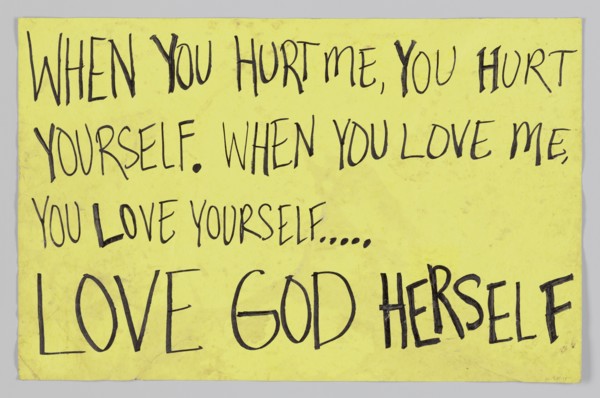 WHEN YOU HURT ME, YOU HURT
YOURSELF. WHEN YOU LOVE ME,
YOU LOVE YOURSELF.....
LOVE GOD HERSELF